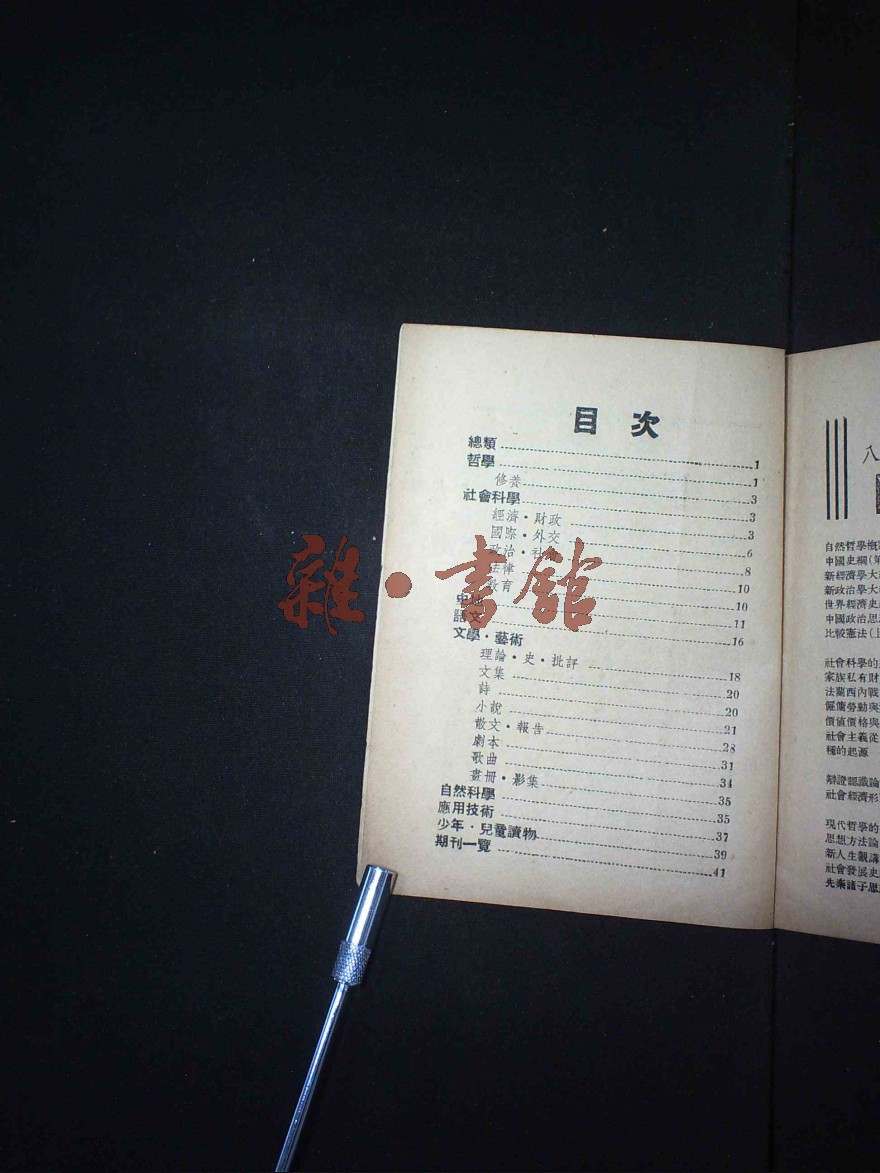 目次
總類 1
哲學 1
修養 3
社會科學 3
經濟・財政 3
國際・外交 6
政治・社會 8
法律 10
教育 10
史地 11
語文 16
文學・藝術
理論・史・批評 18
文集 20
詩 20
小說 21
散文・報告 28
劇本 31
歌曲 34
畫冊・影集 35
自然科學 35
應用技術 37
少年・兒童讀物 39
期刊一覽 41
雜・書館
八
自然哲學概
中國史綱(第
新經濟學大
新政治學大
世界經濟史
中國政治思
比較憲法(上
社會科學的
家族私有財
法蘭西內戰
僱傭勞動與
價值價格與
社會主義從
種的起源
辯證認識論
社會經濟形
現代哲學的
思想方法論
新人生觀講
社會發展史
先秦諸子思